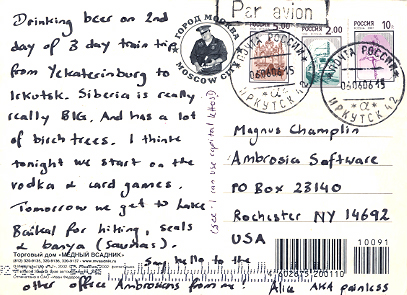 Drinking beer on 2nd
day of 3 day train trip
from Yekaterinburg to
Irkutsk. Siberia is really
really BIG. And has a lot
of birch trees. I think
tonight we start on the
vodka & card games.
Tomorrow we get to Lake
Baikal for hiking, seals
& banya (saunas).
Say hello to the
other office Ambrosians from me! Alia AKA painless
(see I can use capital letters!)
ГОРОД МОСКВА
MOSCOW CITY
Par avion
РОССИЯ 5.00
РОССИЯ 2.00
РОССИЯ 10
ПОЧТА РОССИИ
060606 15
ИРКУТСК 42
ПОЧТА РОССИИ
060606 15
ИРКУТСК 42
Magnus Champlin
Ambrosia Software
PO BOX 23140
Rochester NY 14692
USA
10091
4602675 200110
Торговый дом «МЕДНЫЙ ВСАДНИК»